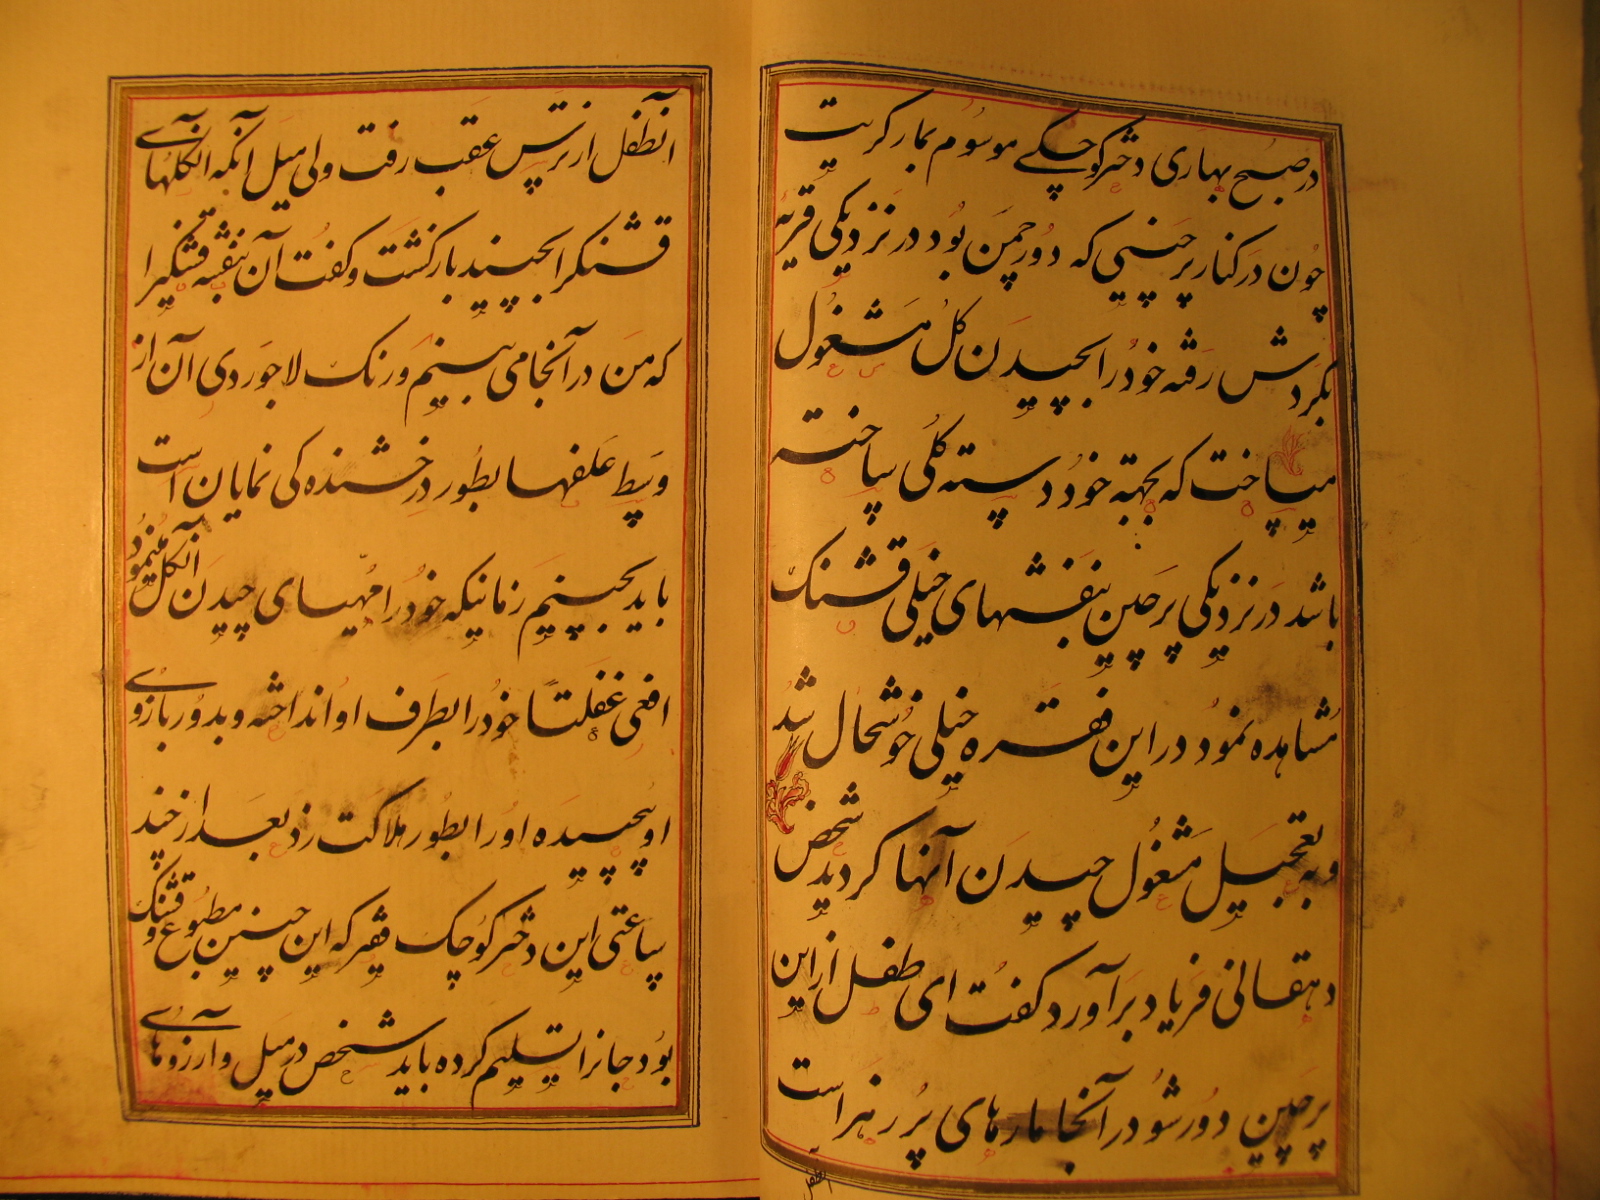 در صبح بهاری دختر کوچکے موسوم بمارکریت
چون در کنار پرچینی که دور چمن بود در نزدیکی قریه
بکردش رفته خود را بچیدن کل مشغول
میساخت که بجهته خود دسته کلی ساخته
باشد در نزدیکی پرچین بنفشهای خیلی قشنک
مشاهده نمود در این فقره خیلی خوشحال شد
و به تعجیل مشغول چیدن آنها کردید شخص
دهقانی فریاد برآورد کفت ای طفل از این
پرچین دور شو در آنجا مارهای پر زهر است
آنطفل
آنطفل از ترس عقب رفت ولی میل آنکه آنکلهای
قشنکرا بچیند بازکشت و کفت آن بنفشه قشنکیرا
که من در آنجا می بینم و رنک لاجوردی آن از
وسط علفها بطور درخشنده کی نمایان است
باید بچینم زمانیکه خود را مهیای چیدن آنکل مینمود
افعی غفلتا خود را بطرف او انداخته و بدور بازوی
او پیچیده او را بطور هلاکت زد بعد از چند
ساعتی این دختر کوچک فقیر که این چنین مطبوع و قشنک
بود جانرا تسلیم کرده باید شخص در میل و آرزوهای